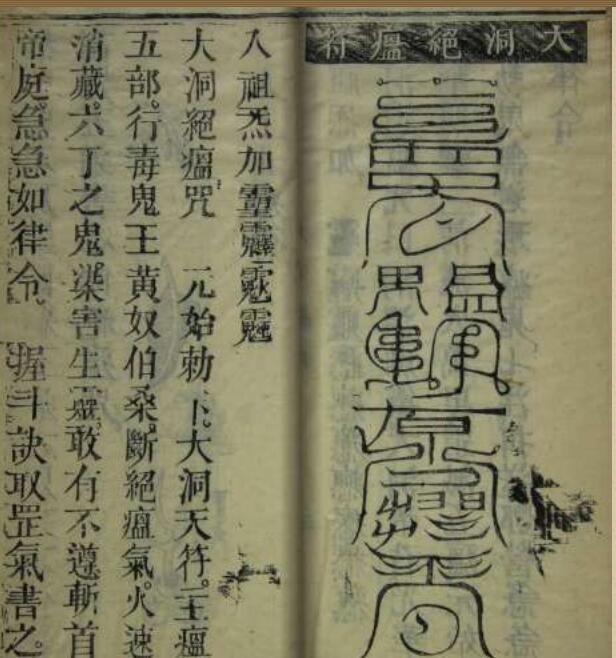 大洞絕瘟符
入祖炁加
大洞絕瘟咒　元始勅下。大洞天符。主瘟
五部。行毒鬼王黃奴伯桑。斷絕瘟氣。火速
消藏。六丁之鬼。染害生靈。敢有不遵斬首
帝庭。急急如律令。　握斗訣取罡氣書之。